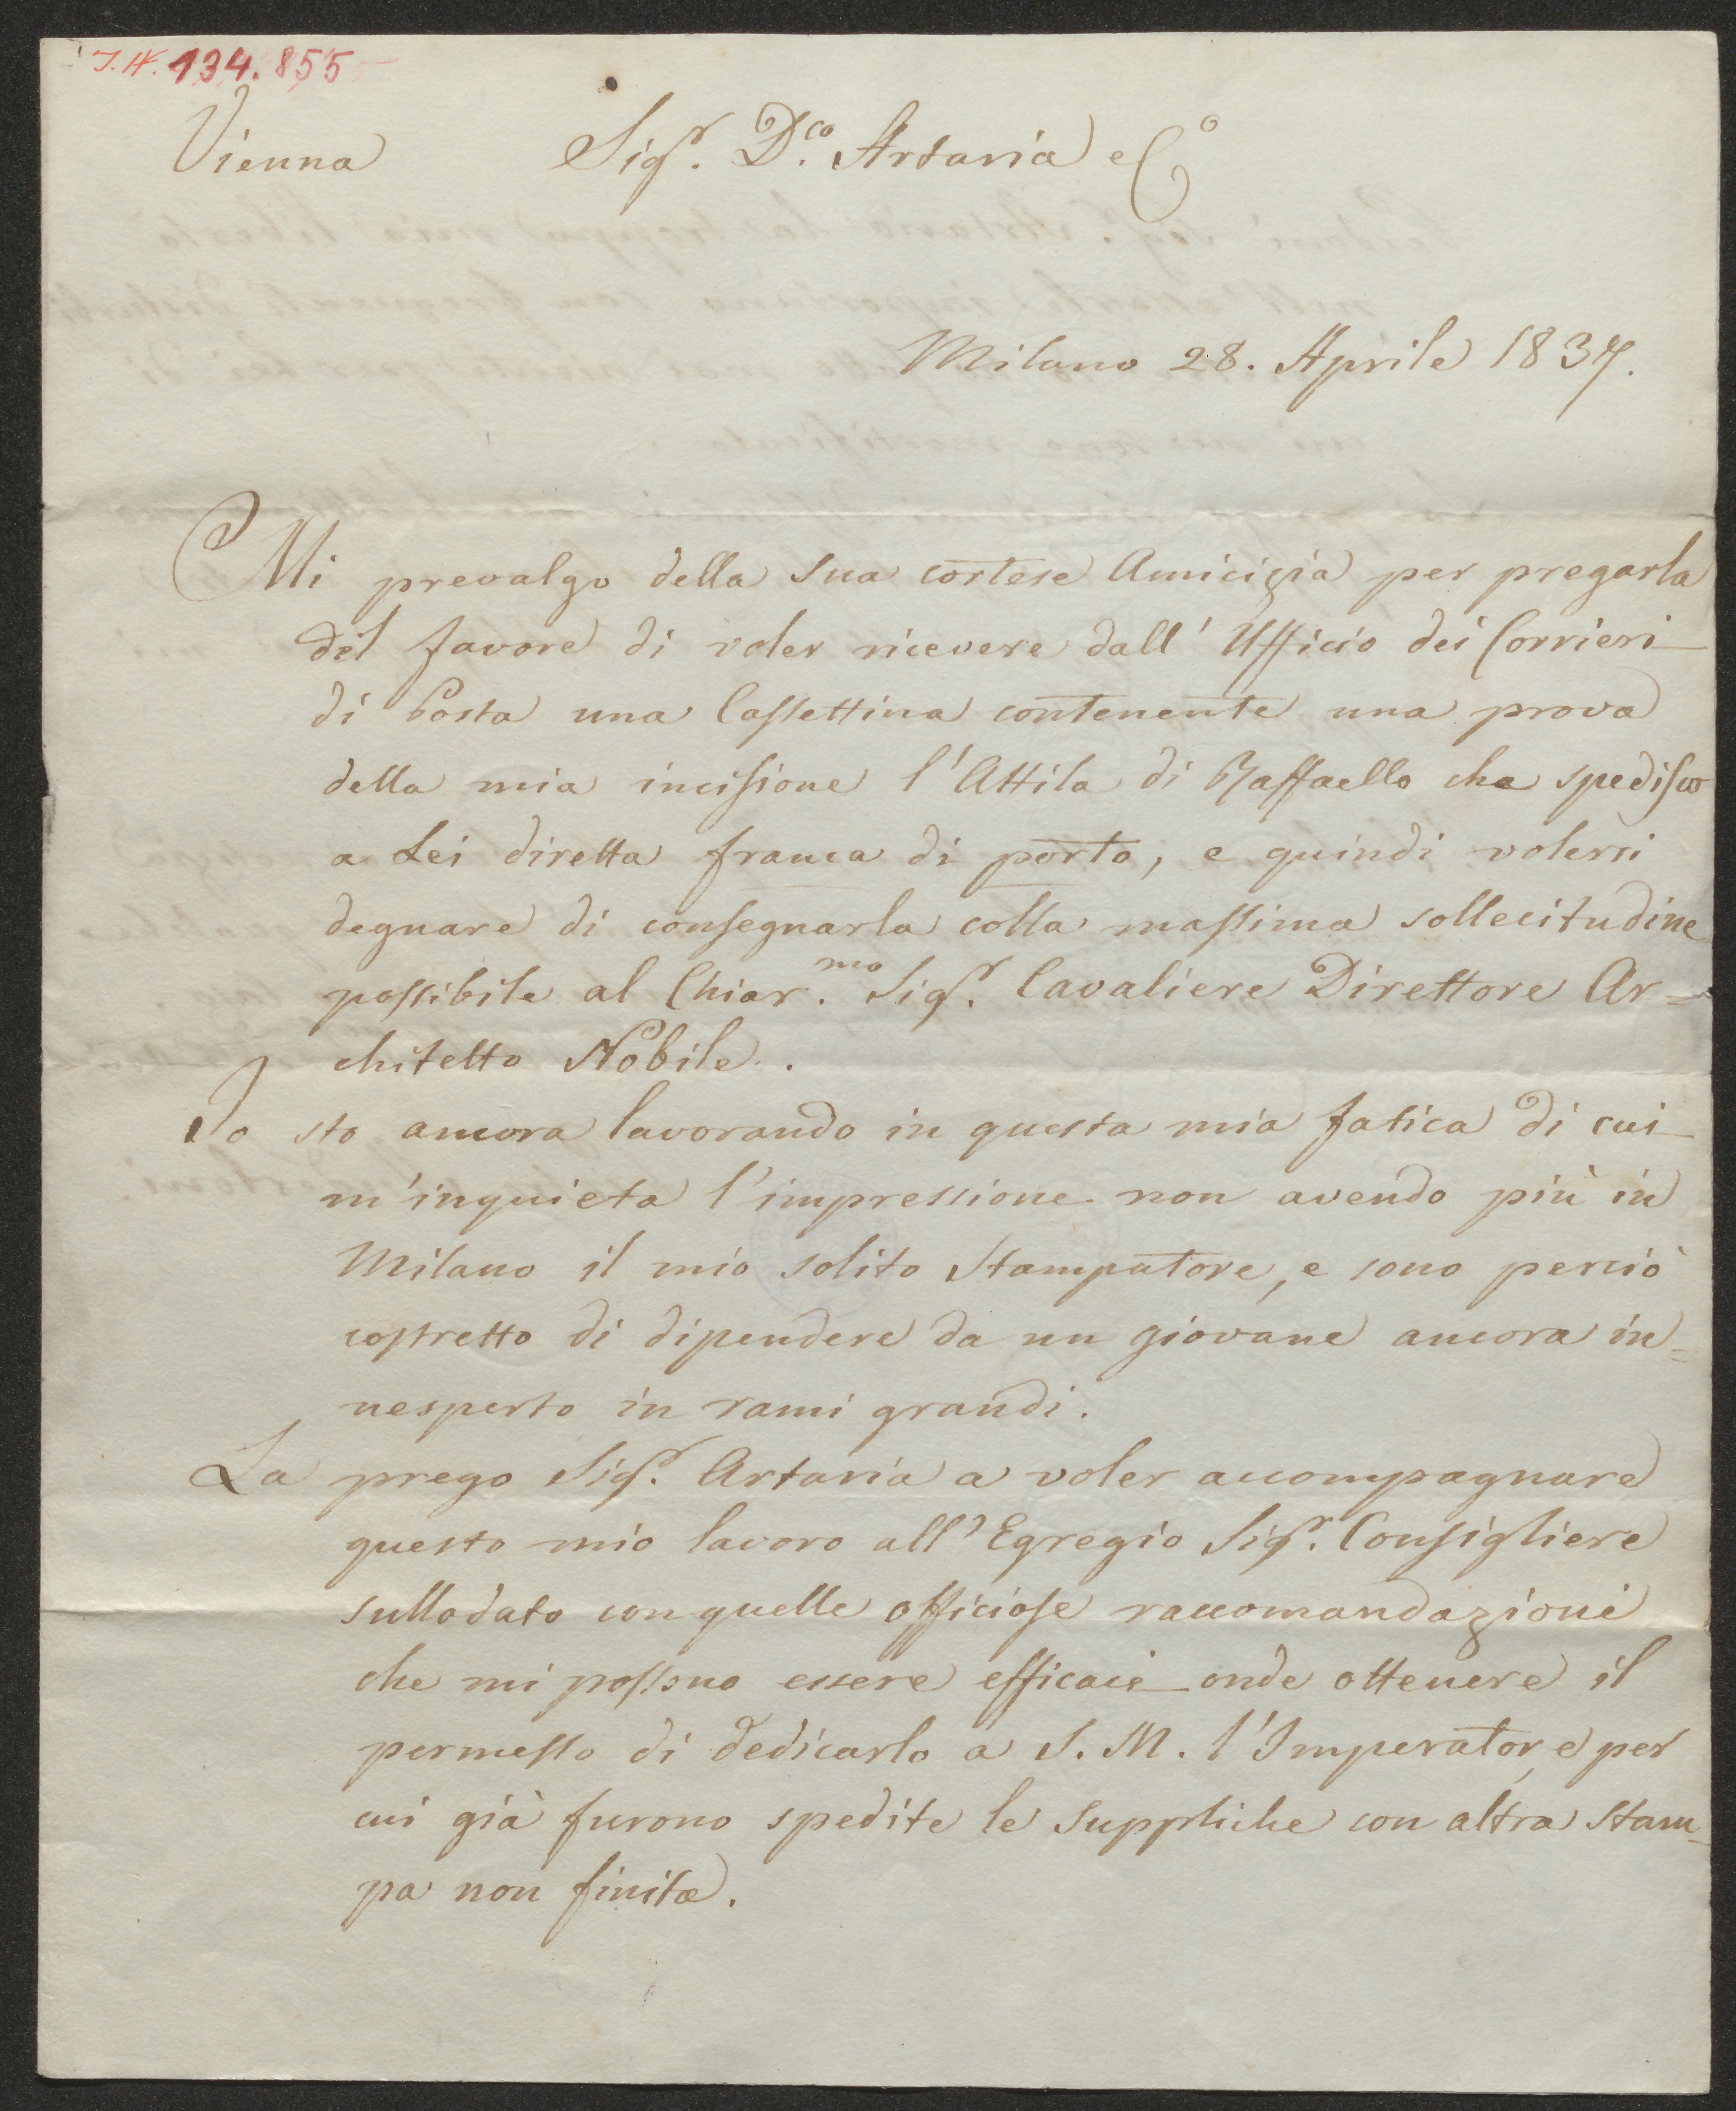 J.N. 134.855
Vienna Sigr. Dco. Artaria e Co
Milano 28. Aprile 1837.
Mi prevalgo della sua cortese Amicizia per pregarla
del favore di voler ricevere dall' Ufficio dei Corrieri
di Posta una Cassettina contenente una prova
della mia incisione l'Attila di Raffaello che spedisco
a Lei diretta franca di porto, e quindi volersi
degnare di consegnarla colla massima sollecitudine
possibile al Chiar.mo Sigr. Cavaliere Direttore Ar=
chitetto Nobile.
Io sto ancora lavorando in questa mia fatica di cui
m'inquieta l'impressione non avendo più in
Milano il mio solito Stampatore, e sono perciò
costretto di dipendere da un giovane ancora in=
nesperto in rami grandi.
La prego Sigr. Artaria a voler accompagnare
questo mio lavoro all'Egregio Sigr. Consigliere
sullodato con quelle officiose raccomandazioni
che mi possono essere efficaci onde ottenere il
permesso di dedicarlo a S. M. l'Imperator, e per
cui già furono spedite le suppliche con altra Stam-
pa non finita.